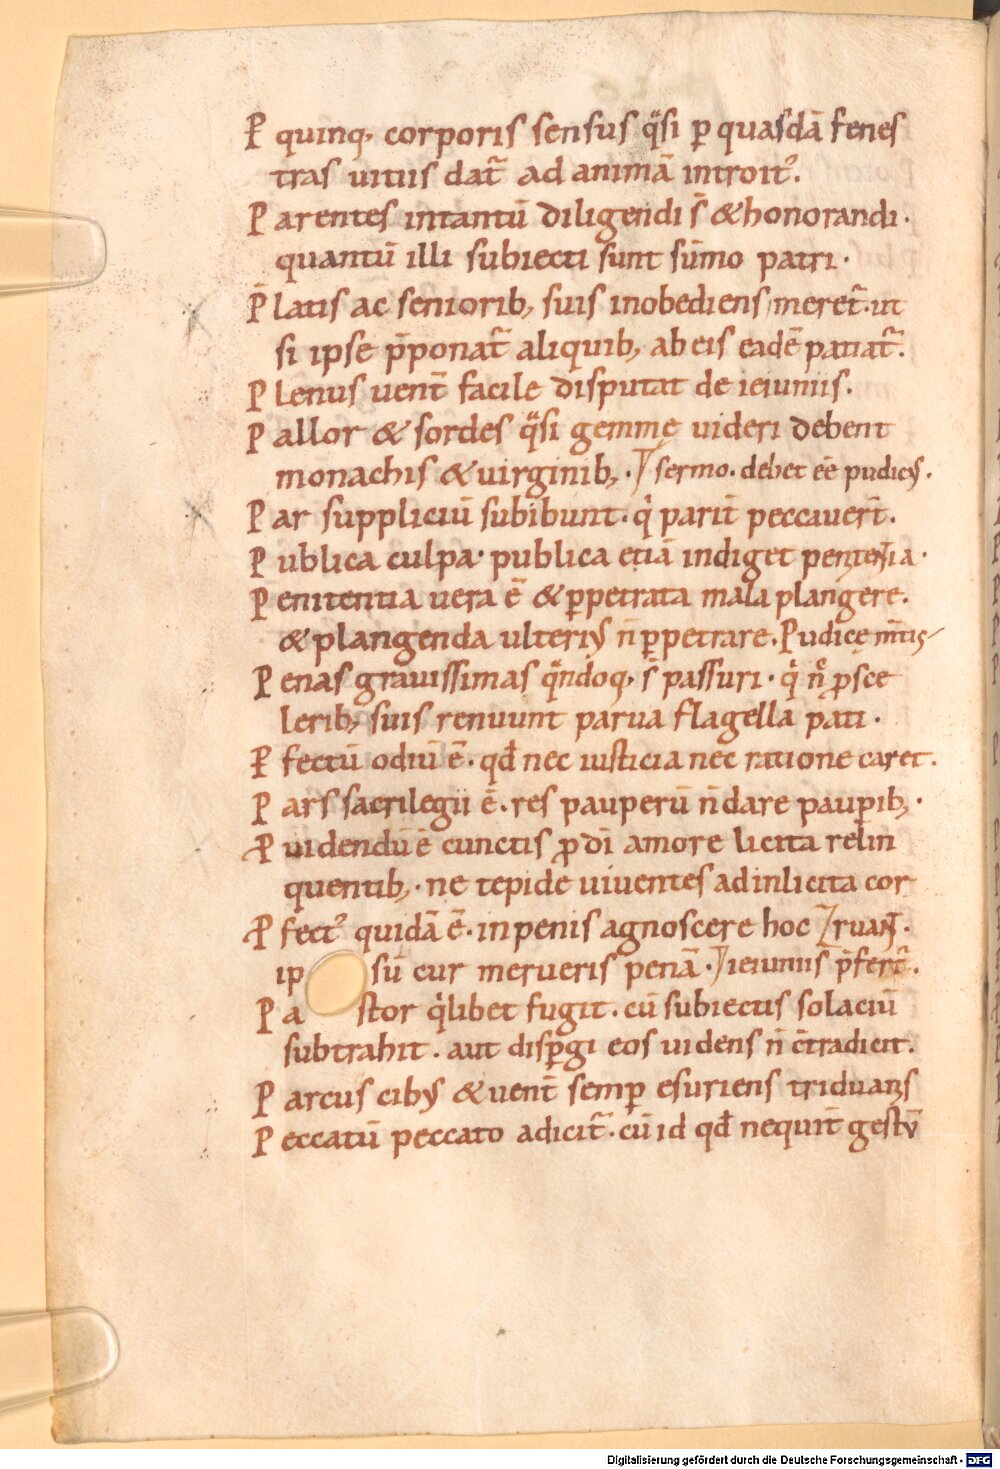 P quinq; corporis sensus q̈si p quasdā fenes
tras uitiis dat̄ ad animā introit᾽.
Parentes intantū diligendi s̄ & honorandi·
quantū illi subiecti sunt sūmo patri·
P̄latis ac seniorib; suis inobediens meret̄·ut
si ipse p̄ponat̄ aliquib; ab eis eadē patiat̄.
Plenus uent̄ facile disputat de ieiuniis.
Pallor & sordes q̈si gemmę uideri debent
monachis & uirginib;· sermo· debet eē pudicꝰ.
Par suppliciū subibunt· qͥ parit̄ peccauer̄t.
Publica culpa· publica etiā indiget penitentia·
Penitentia uera ē & ꝑpetrata mala plangere.
& plangenda ulteriꝰ n̄ ꝑpetrare. Pudicę m̄tis
Penas grauissimas q̄ndoq; s̄ passuri· qͥ n̄ ꝓ sce
lerib; suis renuunt parua flagella pati·
P fectū odiū ē· qđ nec iusticia nec ratione caret.
Pars sacrilegii ē· res pauperū n̄ dare pauꝑib;·
Puidendū ē cunctis ꝓ dī amore licita relin
quentib;· ne tepide uiuentes ad inlicita cor
P fect᾽ quidā ē· in penis agnoscere hoc ruant·
ip sū cur merueris penā· ieiuniis p̄fert̄.
Pa stor qͥlibet fugit· cū subiectis solaciū
subtrahit· aut disꝑgi eos uidens n̄ c̄tradicit.
Parcus cibꝰ & uent̄ semꝑ esuriens triduanis
Peccatū peccato adicit̄· cū id qđ nequit̄ gestū
Digitalisierung gefördert durch die Deutsche Forschungsgemeinschaft - DFG